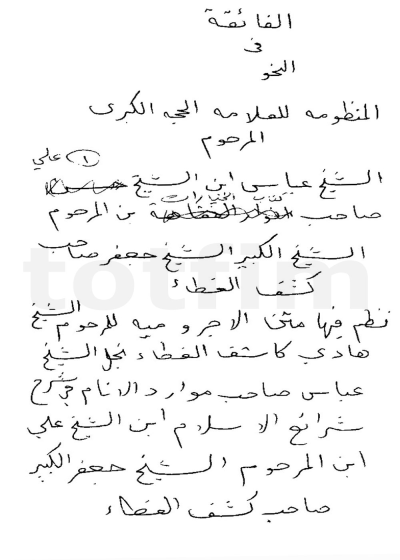 الفائقة
فى
النحو
المنظومه للعلامه الحجه الكبرى
المرحوم
(١) علي
الشيخ عباس ابن الشيخ حسن
كتاب الخيارات
صاحب بن المرحوم
الشيخ الكبير الشيخ جعفر صاحب
كشف الغطاء
نظم فيها متن الاجروميه للمرحوم الشيخ
هادي كاشف الغطاء نجل الشيخ
عباس صاحب موارد الانام في شرح
شرائع الاسلام ابن الشيخ علي
ابن المرحوم الشيخ جعفر الكبير
صاحب كشف الغطاء
totfim